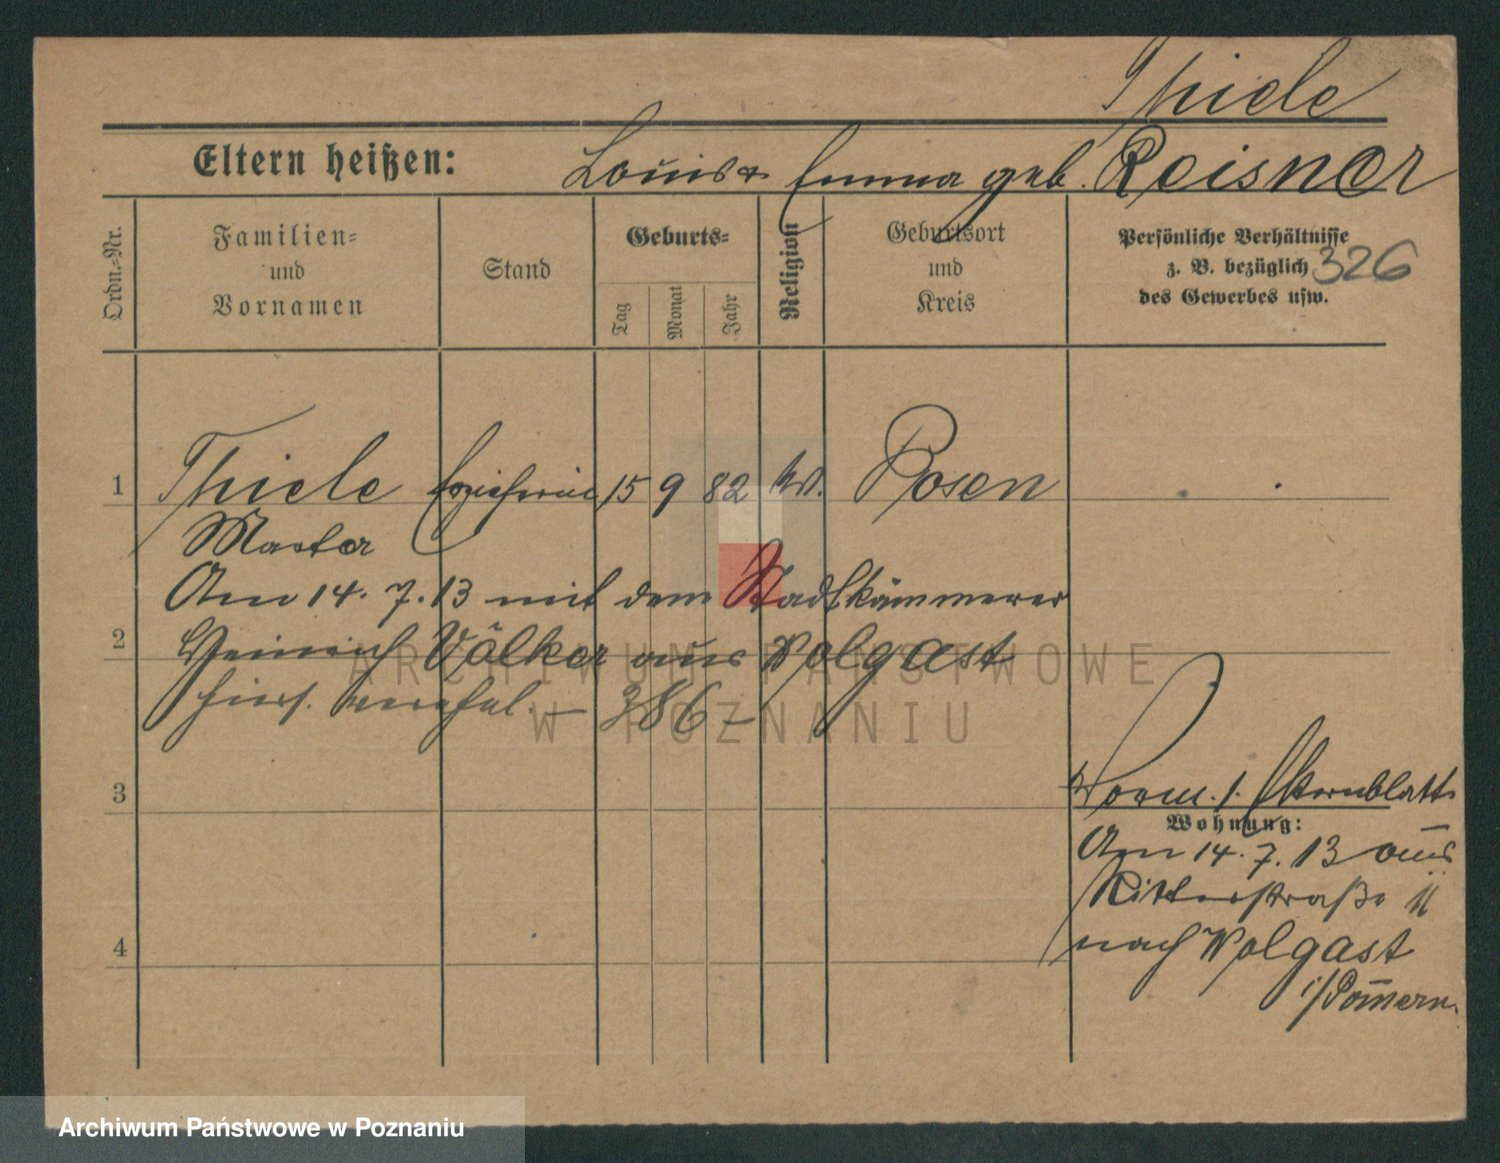 Thiele
Eltern heißen: Louis & Emma geb. Reisner
Ordn.-Nr.
Familien-
und
Vornamen
Stand
Geburts-
Tag
Monat
Jahr
Religion
Geburtsort
und
Kreis
Persönliche Verhältnisse
z. B. bezüglich
des Gewerbes usw.
326
1 Thiele Erzieherin 15 9 82 Posen
Am 14. 7. 13 mit dem Stadtkämmerer
2 Heinrich Völker aus Wolgast
hier verehel. – 386 –
ARCHIWUM PAŃSTWOWE
W POZNANIU
3
Vorm. s. Elternblatt
Wohnung:
Am 14. 7. 13 aus
Ritterstraße 11
4
nach Wolgast
i/Pommern.
Archiwum Państwowe w Poznaniu